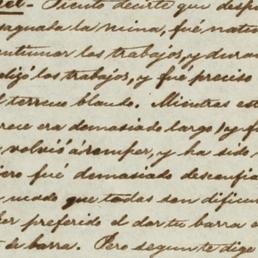 - Siento decirte que desp
paguala la ruina, fué
continuar los trabajos, y dura
los trabajos, y fué preciso
terreno blando. Mientras est
era demasiado largo, y f
volvió á romper, y ha sido
fué demasiado
modo que todas son dificu
preferido el dar tu barra a
la barra. Pero segun te dige